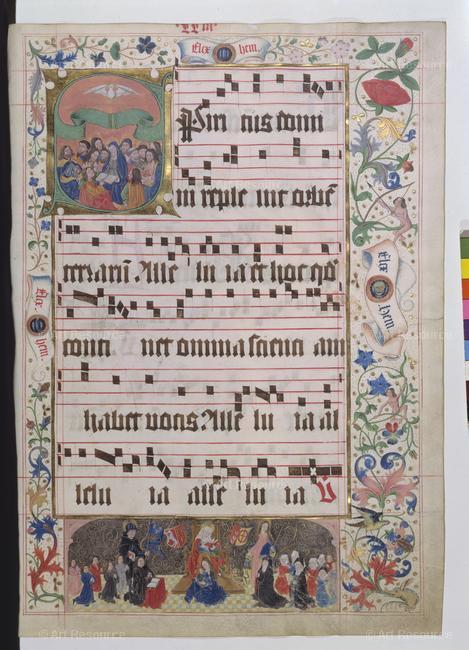 Elcx hem.
Spiri tus domi
ni reple uit orbē
terrarū. Alle lu ia et hoc qd
conti net omnia scienti am
habet uocis. Alle lu ia al
lelu ia alle lu ia V
Elcx hem.
Elcx hem.
© Art Resource
© Art Resource